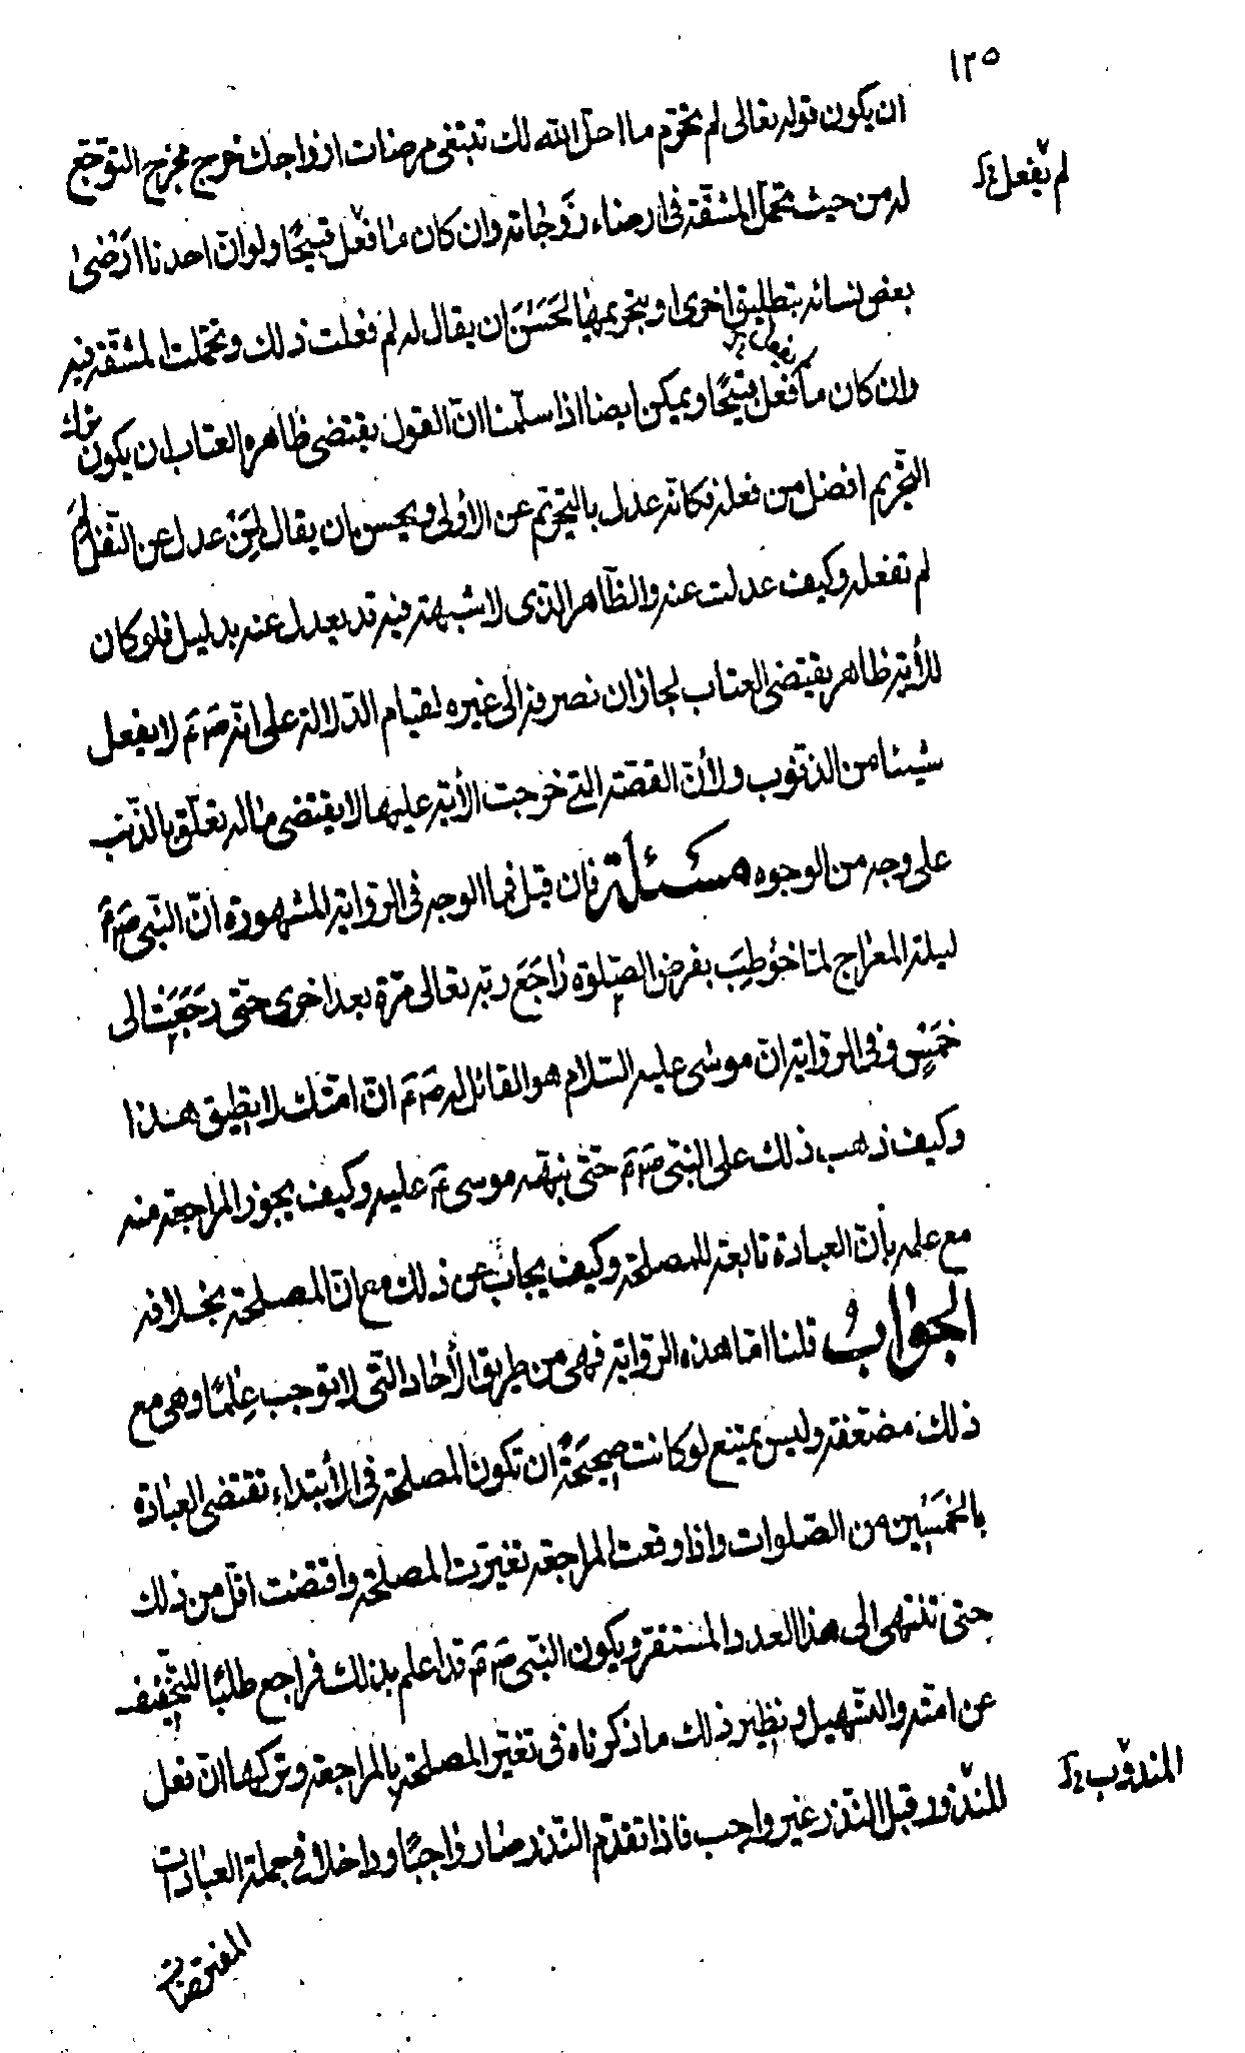 ١٢٥
ان يكون قوله تعالى لم تحرّم ما احلّ الله لك تبتغى مرضات ازواجك خرج مخرج التوجّع
لم يفعل خ‌ل
له من حيث تحمّل المشقّة فى ارضاء زوجاته وان كان ما فعل قبيحًا ولو انّ احدنا ارضى
بعض نسائه بتطليق اخرى او بتحريمها لحَسُنَ ان يقال له لم فعلت ذلك وتحمّلت المشقّة فيه
يفعل خ‌ل
وان كان ما فعل قبيحًا ويمكن ايضا اذا سلّمنا انّ القول يقتضى ظاهره العتاب ان يكون ترك
التحريم افضل من فعله فكانّه عدل بالتحريم عن الأولى ويحسن ان يقال لمن عدل عن النّفل لِمَ
لم تفعله وكيف عدلت عنه والظّاهر الّذى لا شبهة فيه قد يعدل عنه بدليل فلو كان
للأية ظاهر يقتضى العتاب لجاز ان نصرفه الى غيره لقيام الدّلالة على انّه صم لا يفعل
شيئا من الذّنوب ولأنّ القصّة الّتى خرجت الأية عليها لا يقتضى ماله تعلّق بالذّنب
على وجه من الوجوه مسئلة فان قيل فما الوجه فى الرّواية المشهورة انّ النّبى صم
ليلة المعراج لمّا خُوطِبَ بفرض الصّلوة راجَعَ ربّه تعالى مرّة بعد اخرى حتّى رجَعَت الى
خَمسٍ وفى الرّواية انّ موسى عليه السّلام هو القائل له صم انّ امّتك لا يطيق هذا
وكيف ذهب ذلك على النّبى صم حتّى نبّهه موسى ع عليه وكيف يجوز المراجعة منه
مع علمه بأنّ العبادة تابعة للمصلحة وكيف يجاب عن ذلك مع انّ المصلحة بخلافه
الجوابُ قلنا امّا هذه الرّواية فهى من طريق الأحاد الّتى لا توجب عِلمًا وهى مع
ذلك مضعّفة وليس يمتنع لو كانت صحيحةً ان تكون المصلحة فى الأبتداء تقتضى العبادة
بالخَمسين من الصّلوات واذا وقعت المراجعة تغيّرت المصلحة واقتضت اقلّ من ذلك
حتى تنتهى الى هذا العدد المستقر ويكون النّبى صم قد اعلم بذلك فراجع طلبًا للتّخفيف
عن امّته والتّسهيل ونظير ذلك ما ذكرناه فى تغيّر المصلحة بالمراجعة وتركها انّ فعل
المندوب خ‌ل
المنذور قبل النّذر غير واجب فاذا تقدّم النّذر صار واجبًا وداخلا فى جملة العبادات
المفترضات